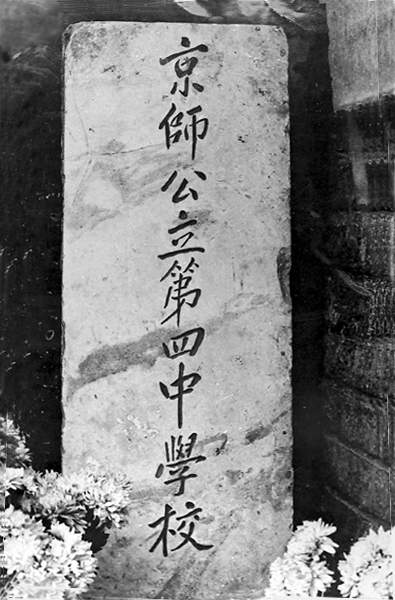 京師公立第四中學校